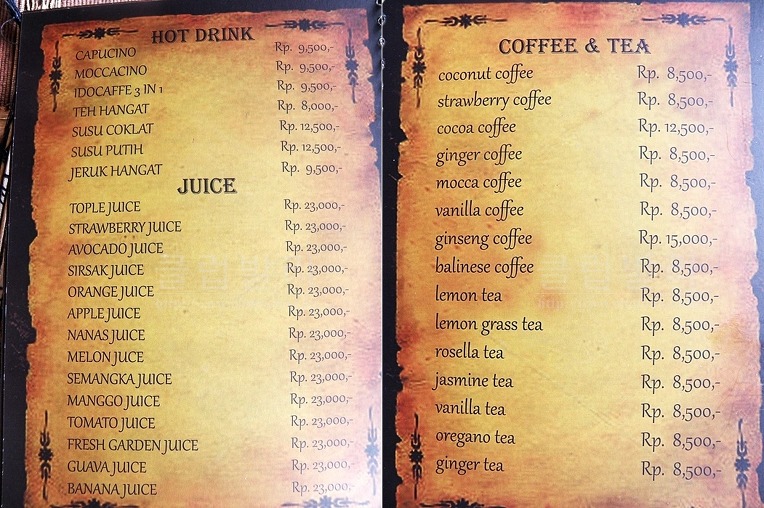 HOT DRINK
CAPUCINO Rp. 9,500,-
MOCCACINO Rp. 9,500,-
IDOCAFFE 3 IN 1 Rp. 9,500,-
TEH HANGAT Rp. 8,000,-
SUSU COKLAT Rp. 12,500,-
SUSU PUTIH Rp. 12,500,-
JERUK HANGAT Rp. 9,500,-
JUICE
TOPLE JUICE Rp. 23,000,-
STRAWBERRY JUICE Rp. 23,000,-
AVOCADO JUICE Rp. 23,000,-
SIRSAK JUICE Rp. 23,000,-
ORANGE JUICE Rp. 23,000,-
APPLE JUICE Rp. 23,000,-
NANAS JUICE Rp. 23,000,-
MELON JUCE Rp. 23,000,-
SEMANGKA JUICE Rp. 23,000,-
MANGGO JUICE Rp. 23,000,-
TOMATO JUICE Rp. 23,000,-
FRESH GARDEN JUICE Rp. 23,000,-
GUAVA JUICE Rp. 23,000,-
BANANA JUICE Rp. 23,000,-
COFFEE & TEA
coconut coffee Rp. 8,500,-
strawberry coffee Rp. 8,500,-
cocoa coffee Rp. 12,500,-
ginger coffee Rp. 8,500,-
mocca coffee Rp. 8,500,-
vanilla coffee Rp. 8,500,-
ginseng coffee Rp. 15,000,-
balinese coffee Rp. 8,500,-
lemon tea Rp. 8,500,-
lemon grass tea Rp. 8,500,-
rosella tea Rp. 8,500,-
jasmine tea Rp. 8,500,-
vanilla tea Rp. 8,500,-
oregano tea Rp. 8,500,-
ginger tea Rp. 8,500,-